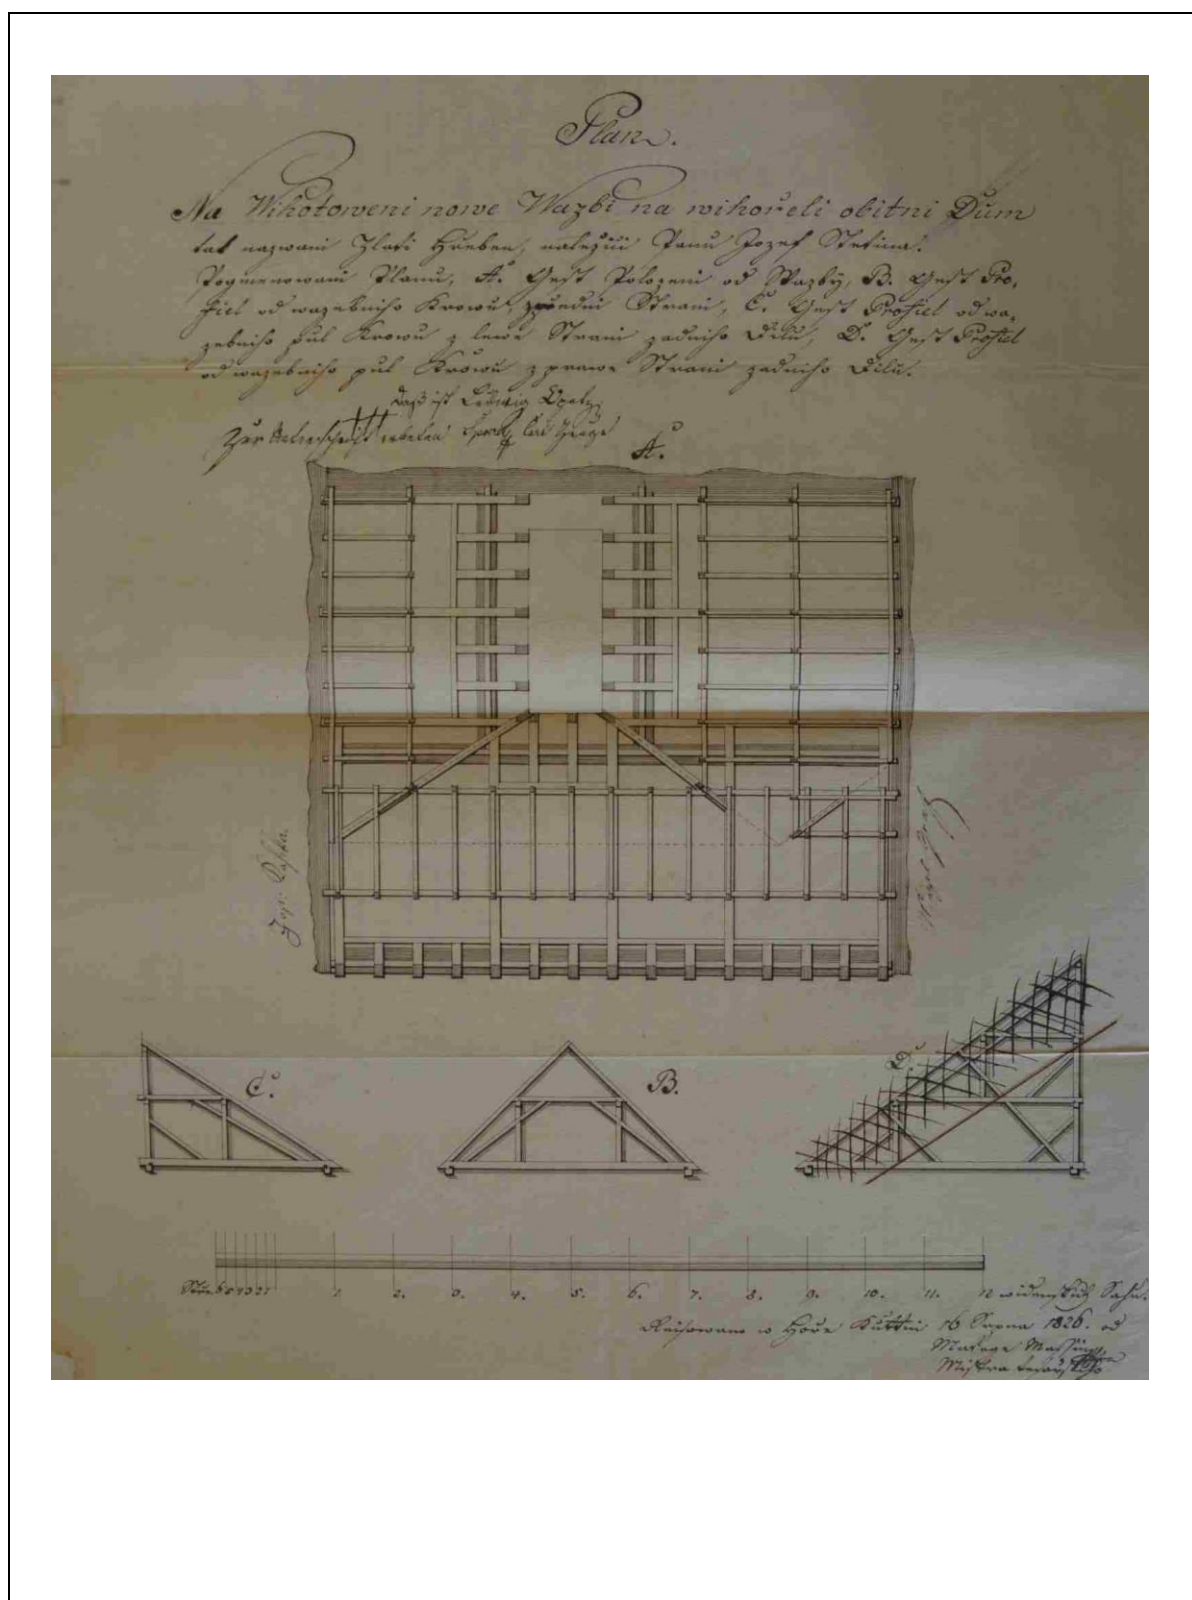 Plan.
Na Wihotoweni nowe Wazbi na wihořeli obitni Dům
tak nazwani Zlati Hřeben, naležici Panu Jozef Stetina.
Pogmenowani Planu, A. Gest Položeni od Wazby, B. Gest Pro-
fiel od wazebniho Krowu, zpředni Strani, C. Gest Profiel od wa-
zebniho pul Krowu z lewe Strani zadniho Dilu, D. Gest Profiel
od wazebniho pul Krowu z prawe Strani zadniho Dilu.
daß ist Ludwig
Zur
A.
C.
B.
D.
6 5 4 3 2 1 1. 2. 3. 4. 5. 6. 7. 8. 9. 10. 11. 12 widenskich Sahu.
w Hoře Kuttni 16 Srpna 1826. od
Mistra tesařskiho